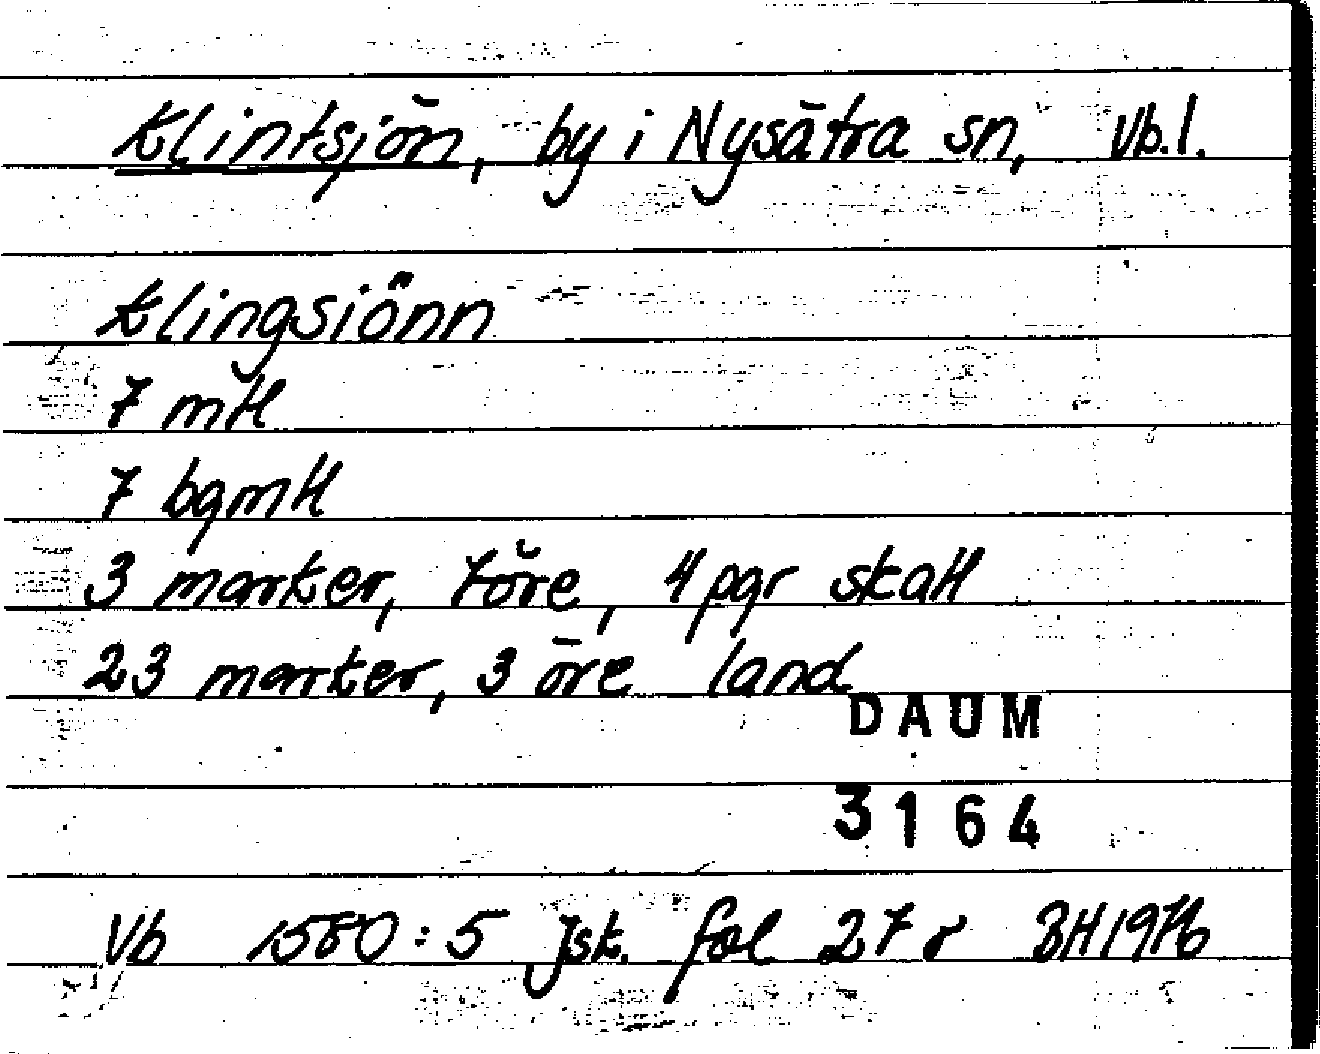 Klintsjön, by i Nysätra sn, Vb.l.
Klingsiönn
7 mtl
7 bgmtl
3 marker, 7 öre, 4 pgr skatt
23 marker, 3 öre land
DAUM
3164
Vb 1580:5 Jsk. fol 27 r BH 1976